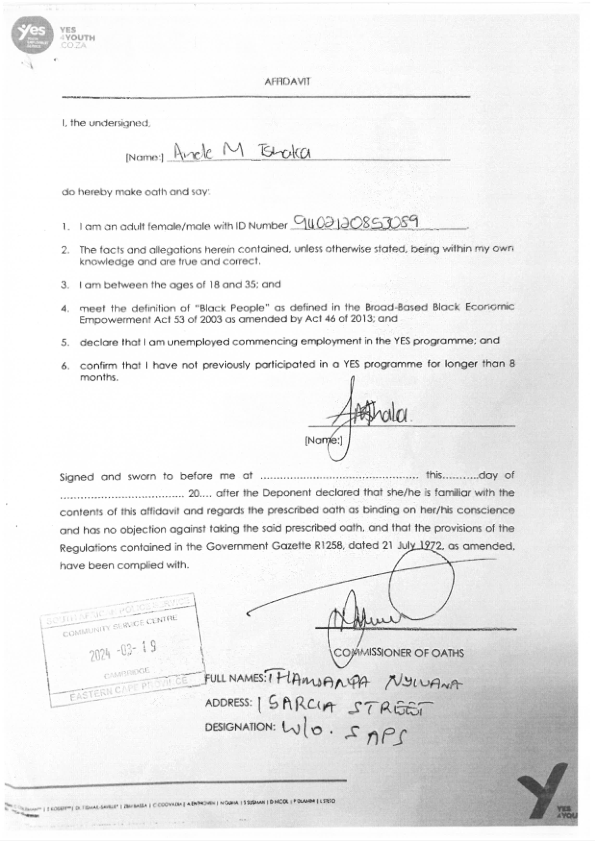 yes
YES
4YOUTH
CO.ZA
AFFIDAVIT
I, the undersigned,
[Name:] Anele M Tshaka
do hereby make oath and say:
1. I am an adult female/male with ID Number 9402120853089
2. The facts and allegations herein contained, unless otherwise stated, being within my own
knowledge and are true and correct.
3. I am between the ages of 18 and 35; and
4. meet the definition of “Black People” as defined in the Broad-Based Black Economic
Empowerment Act 53 of 2003 as amended by Act 46 of 2013; and
5. declare that I am unemployed commencing employment in the YES programme; and
6. confirm that I have not previously participated in a YES programme for longer than 8
months.
[Name:]
Signed and sworn to before me at ............................................... this..........day of
..................................... 20.... after the Deponent declared that she/he is familiar with the
contents of this affidavit and regards the prescribed oath as binding on her/his conscience
and has no objection against taking the said prescribed oath, and that the provisions of the
Regulations contained in the Government Gazette R1258, dated 21 July 1972, as amended,
have been complied with.
SOUTH AFRICAN POLICE SERVICE
COMMUNITY SERVICE CENTRE
2024 -03- 19
CAMBRIDGE
EASTERN CAPE PROVINCE
COMMISSIONER OF OATHS
FULL NAMES: THAMSANQA NYWANA
ADDRESS: 1 GARCIA STREET
DESIGNATION: W/O. SAPS
YES
4YOUTH